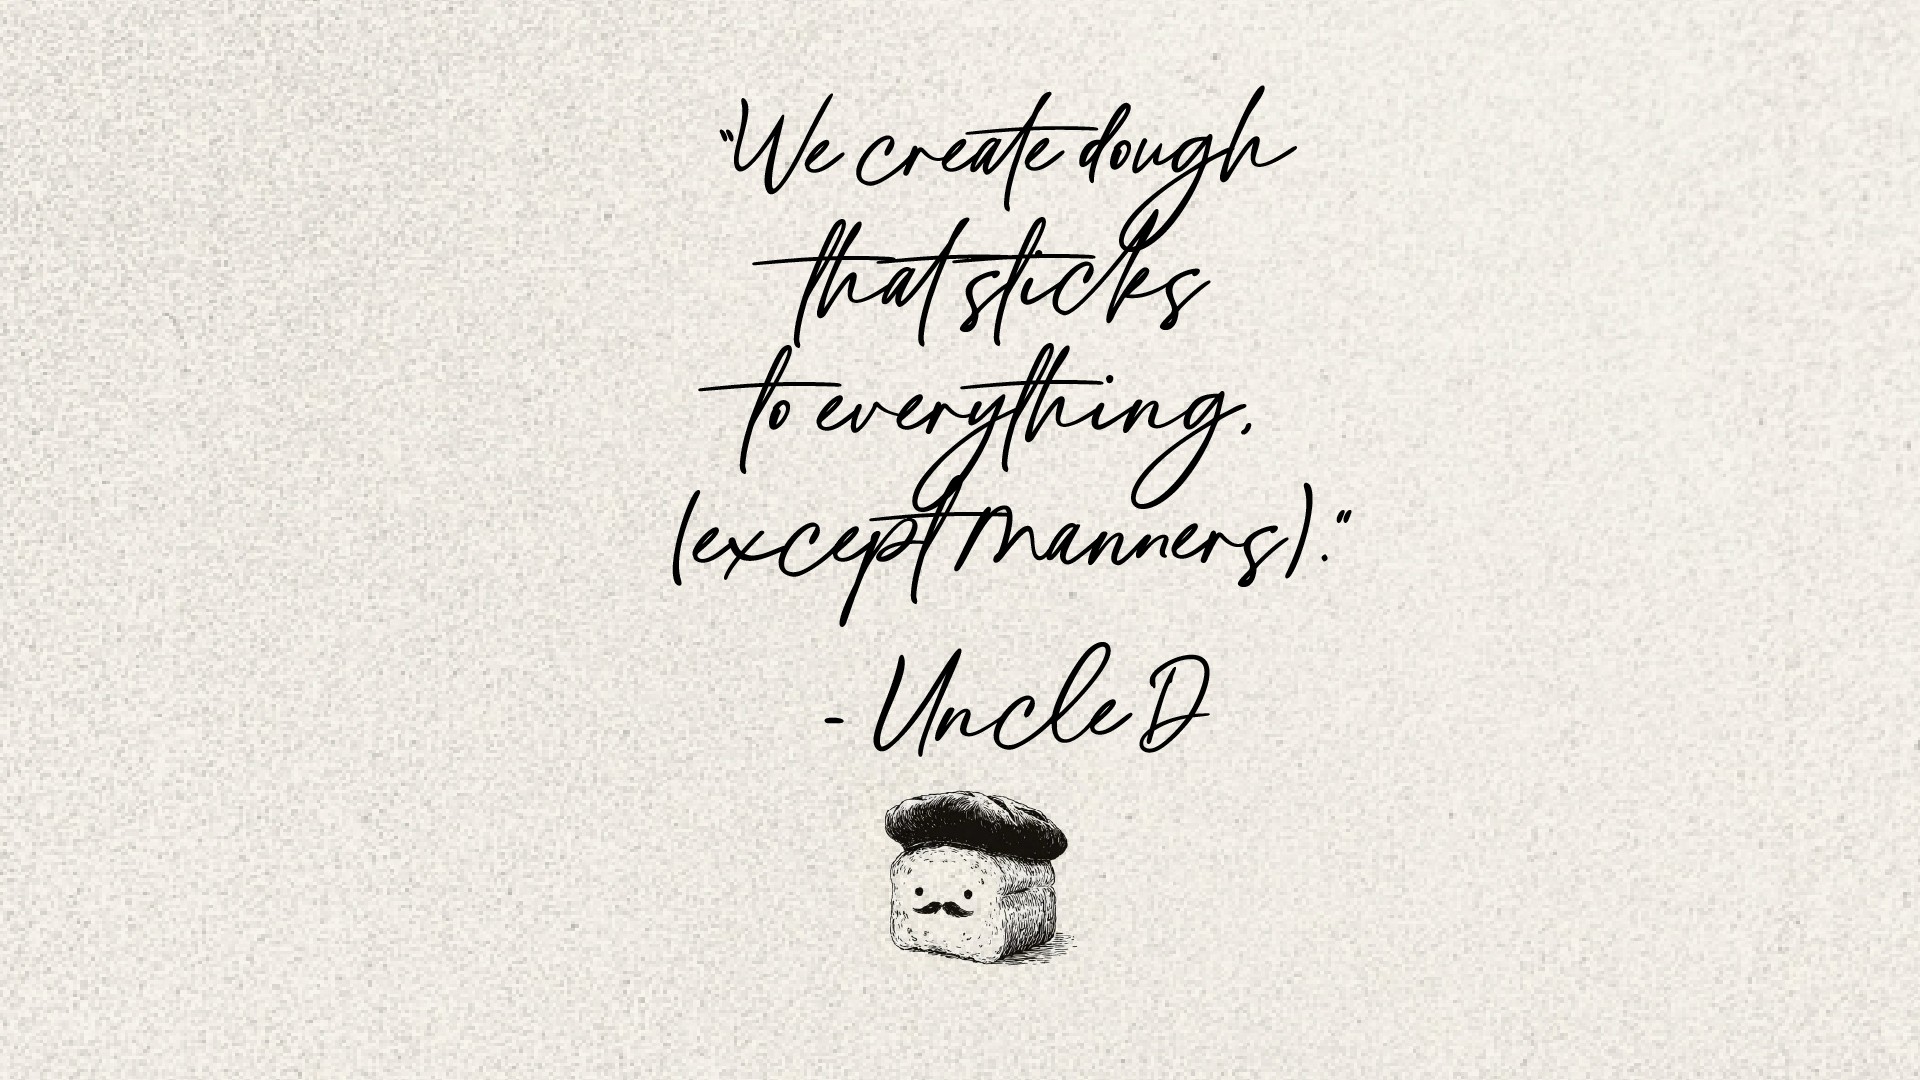 "We create dough
that sticks
to everything,
(except manners)."
- Uncle D